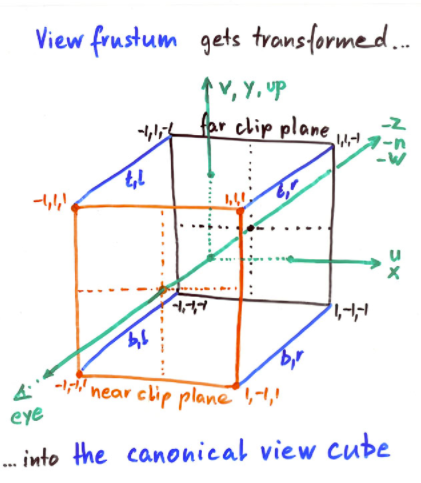 View frustum gets transformed...
v, y, up
far clip plane
-1,1,-1
1,1,-1
-z
-n
-w
t,l
t,r
-1,1,1
1,1,1
u
x
-1,-1,-1
1,-1,-1
b,l
b,r
-1,-1,1
near clip plane
1,-1,1
eye
... into the canonical view cube